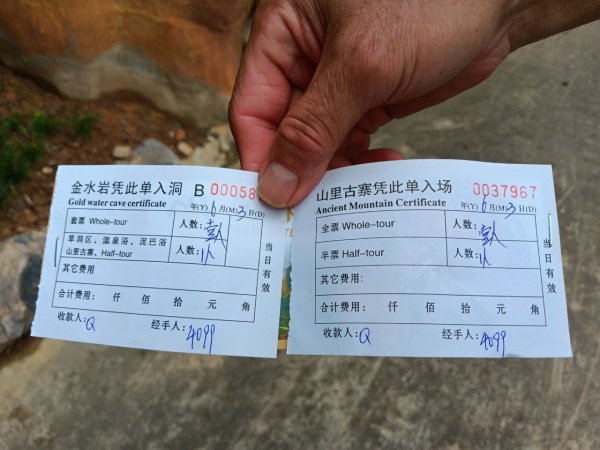 金水岩凭此单入洞 B 00058
Gold water cave certificate 年(Y) 6 月(M) 3 日(D)
套票 Whole–tour 人数: 壹人
旱洞区、温泉浴、泥巴浴
山里古寨、Half–tour 人数: 1人
其它费用
合计费用: 仟 佰 拾 元 角
收款人: Q 经手人: 4099
当日有效
山里古寨凭此单入场 0037967
Ancient Mountain Certificate 年(Y) 6 月(M) 3 日(D)
全票 Whole–tour 人数: 壹人
半票 Half–tour 人数: 1人
其它费用:
合计费用: 仟 佰 拾 元 角
收款人: Q 经手人: 4099
当日有效